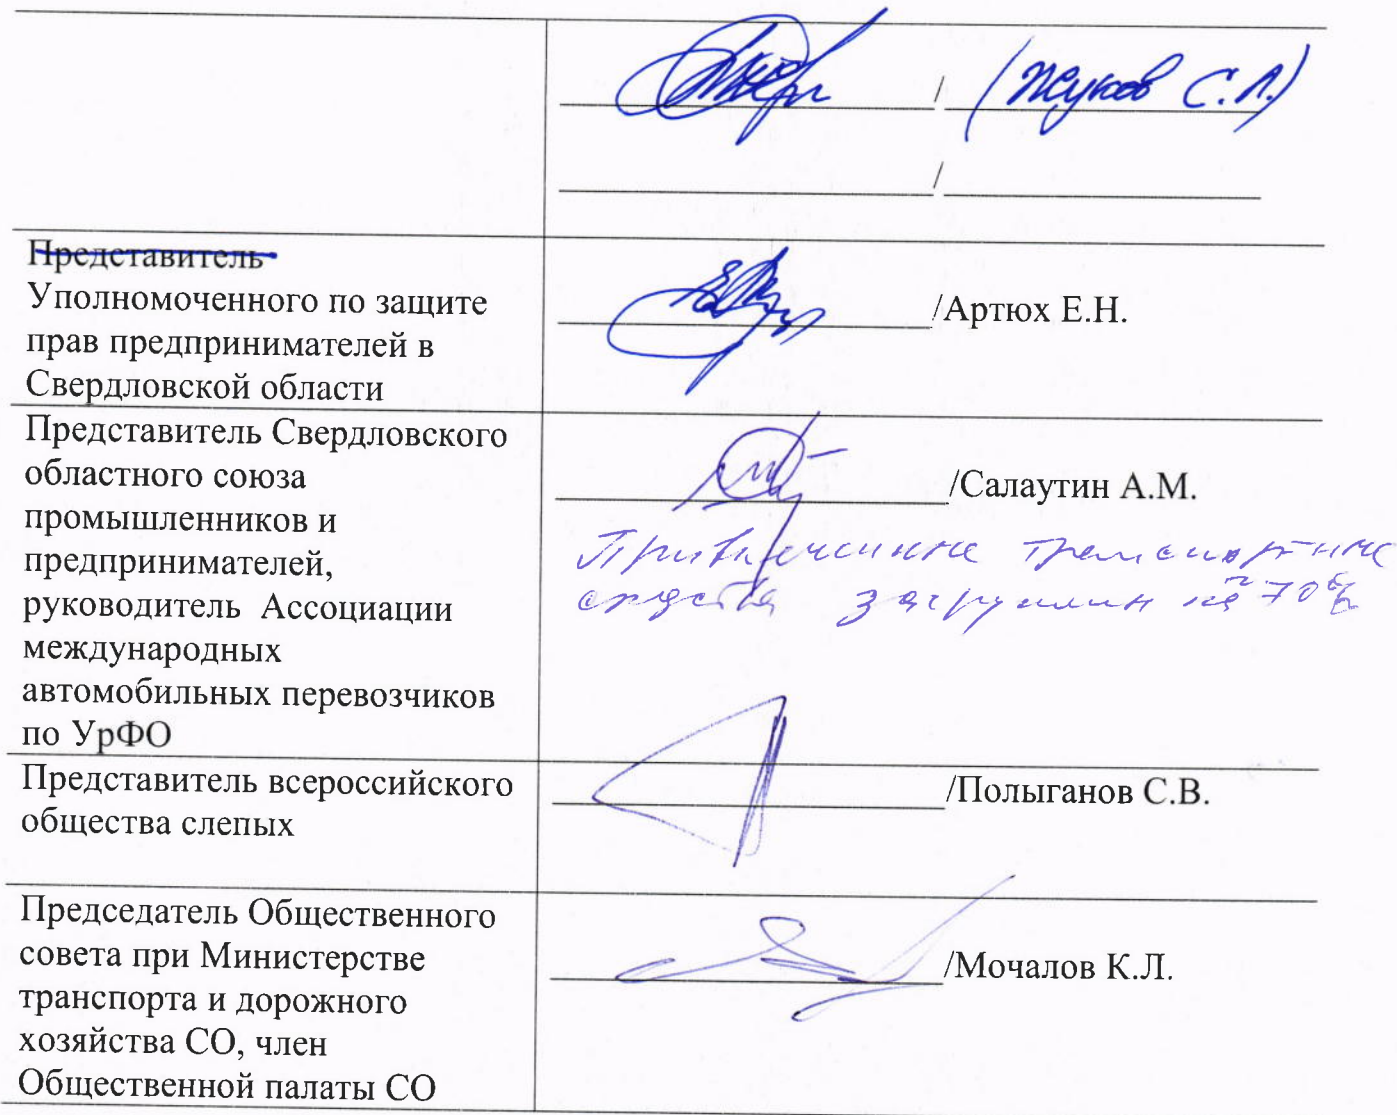 / (Жуков С.А.)
/
Представитель
Уполномоченного по защите
прав предпринимателей в
Свердловской области
/Артюх Е.Н.
Представитель Свердловского
областного союза
промышленников и
предпринимателей,
руководитель Ассоциации
международных
автомобильных перевозчиков
по УрФО
/Салаутин А.М.
Привлеченные транспортные
средства загружены на ~70%
Представитель всероссийского
общества слепых
/Полыганов С.В.
Председатель Общественного
совета при Министерстве
транспорта и дорожного
хозяйства СО, член
Общественной палаты СО
/Мочалов К.Л.